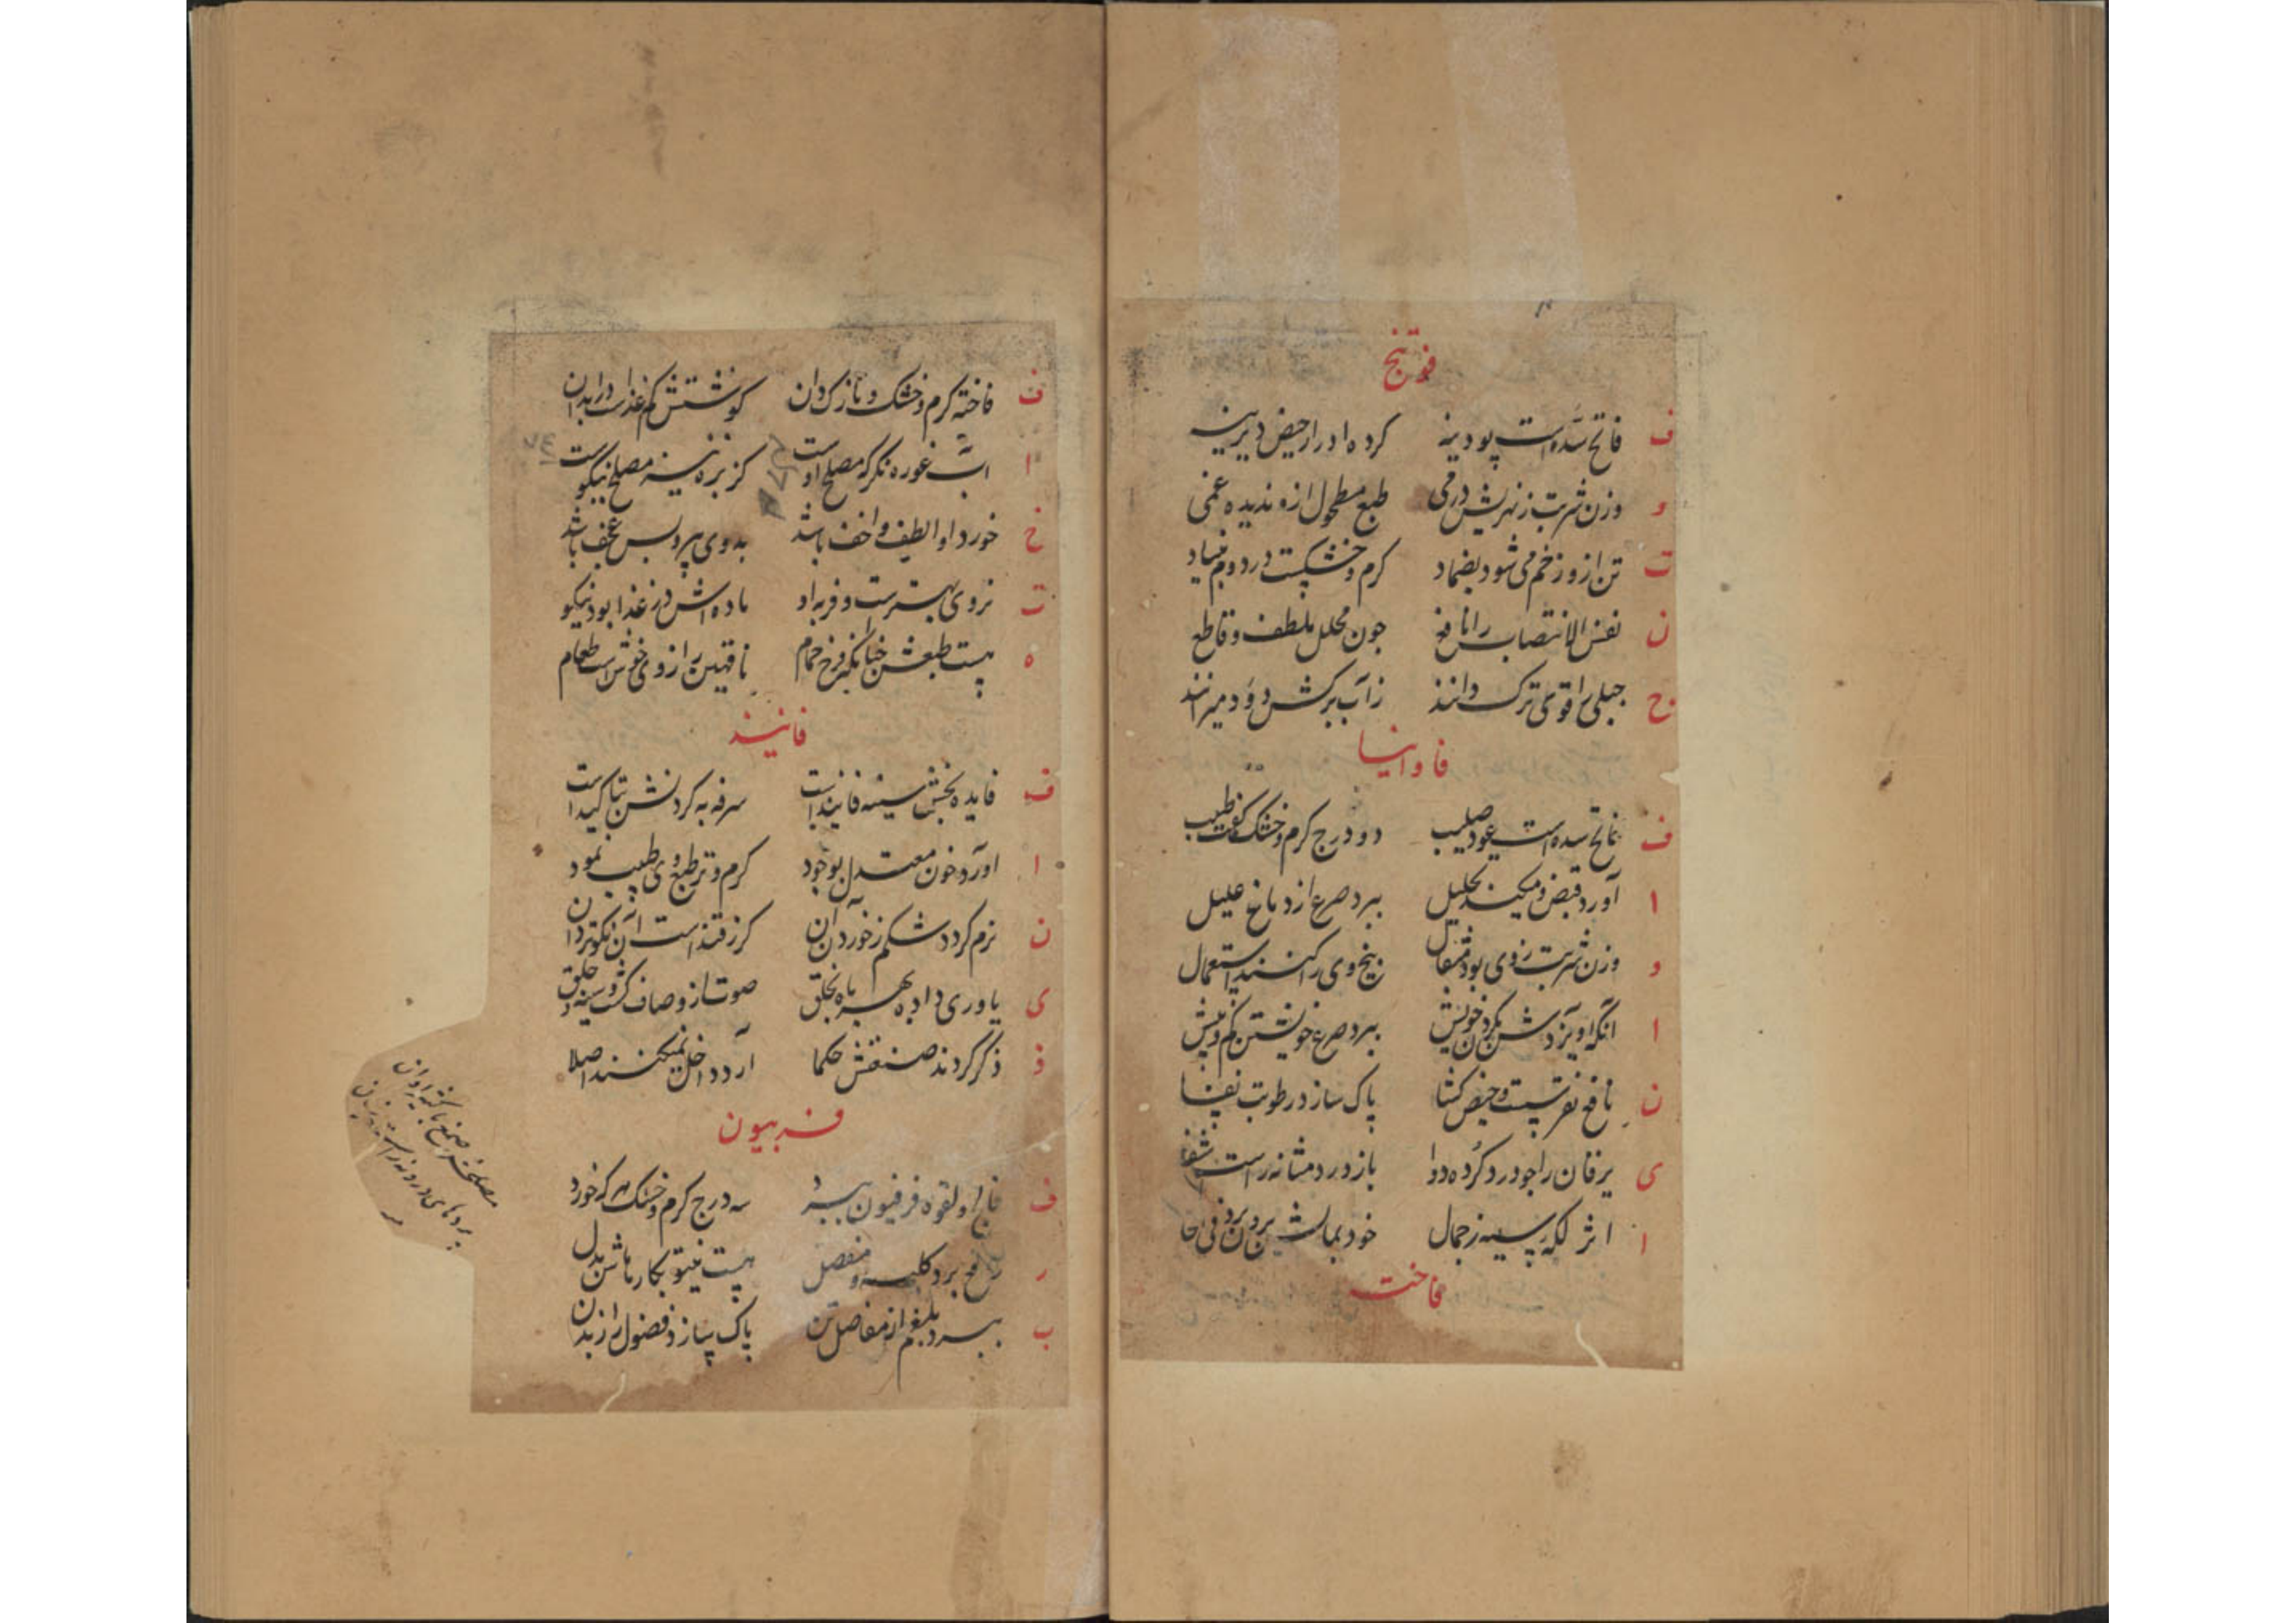 فوتنج
ف فاتح سده است پودینه کرده ادرار حیض دیرینه
و وزن شربت زنهریش درمی طبع مطحول ازو ندیده غمی
ت تن ازو زخم می شود بضماد کرم و خشکست در دوم
ن نفس الانتصاب را نافع جون محلل ملطف و قاطع
ح جبلی را قوی ترک دانند زآب برکش دود میرانند
فاوانیا
ف فاتح سده است عود صلیب دو درج کرم و خشک گفت طبیب
ا آورد قبض و میکند تحلیل ببرد صرع از دماغ علیل
و وزن شربت زوی بود مثقال بیخ وی را کنند استعمال
ا آنکه آویزدش بکردن خویش ببرد صرع خویشتن کم و بیش
ن نافع نقرست و حیض کشا پاک سازد رطوبت
ی یرقان را جو درد کرده دوا باز درد مثانه راست شفا
ا اثر لکه سیه ز جمال خود بمالش برون برد فی حال
فاخت
ف فاخته کرم و خشک و نازک دان کوشتش کم غذاست در ابدان
ا آب غوره نکر که مصلح اوست کزبره نیز مصلح نیکوست
خ خورد او الطیف و اخف باشد بد وی پیر و بس عجف باشد
ت نر وی بهترست و فربه او ماده اش در غذا بود نیکو
ه هست طبعش چنانکه فرخ حمام ناقهین را ز وی خوش است طعام
فانیذ
ف فایده بخش سینه فانیذ است سرفه به کردنش بتاکید است
ا آورد خون معتدل بوجود کرم و تر طبع وی طبیب نمود
ن نرم کردد شکم ز خوردن آن کر ز قند است آن نکوتر دان
ی یاوری داده بهر باه بخلق صوت ازو صاف کشت و سینه و حلق
ذ ذکر کردند صنعتش حکما آرد داخل نمیکنند اصلا
فربیون
ف فالج و لقوه فرفیون ببرد سه درج کرم و خشک هر که خورد
ر رافع برد کلیه و مفصل هست میتو بکار ماش بدل
ب ببرد بلغم از مفاصل تن پاک سازد فضول را ز بدن